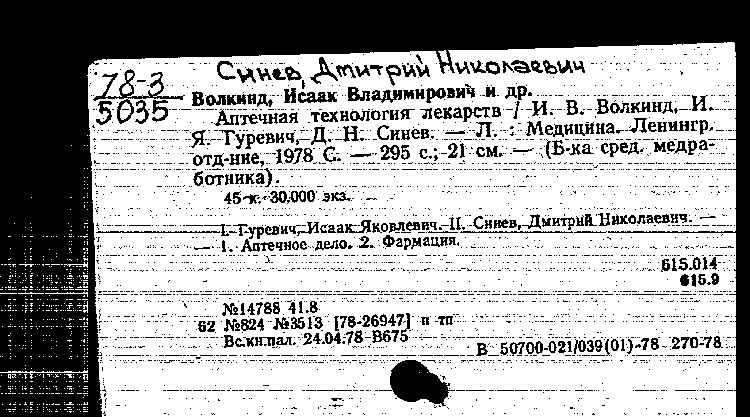 Синев, Дмитрий Николаевич
78-3
5035
Волкинд, Исаак Владимирович и др.
Аптечная технология лекарств / И. В. Волкинд, И.
Я. Гуревич, Д. Н. Синев. — Л. : Медицина. Ленингр.
отд-ние, 1978 С. — 295 с.; 21 см. — (Б-ка сред. медра-
ботника).
45 к. 30.000 экз.
I. Гуревич, Исаак Яковлевич. II. Синев, Дмитрий Николаевич. —
— 1. Аптечное дело. 2. Фармация.
615.014
615.9
№14788 41.8
62 №824 №3513 [78-26947] п тп
Вс.кн.пал. 24.04.78 В675
В 50700-021/039(01)-78 270-78